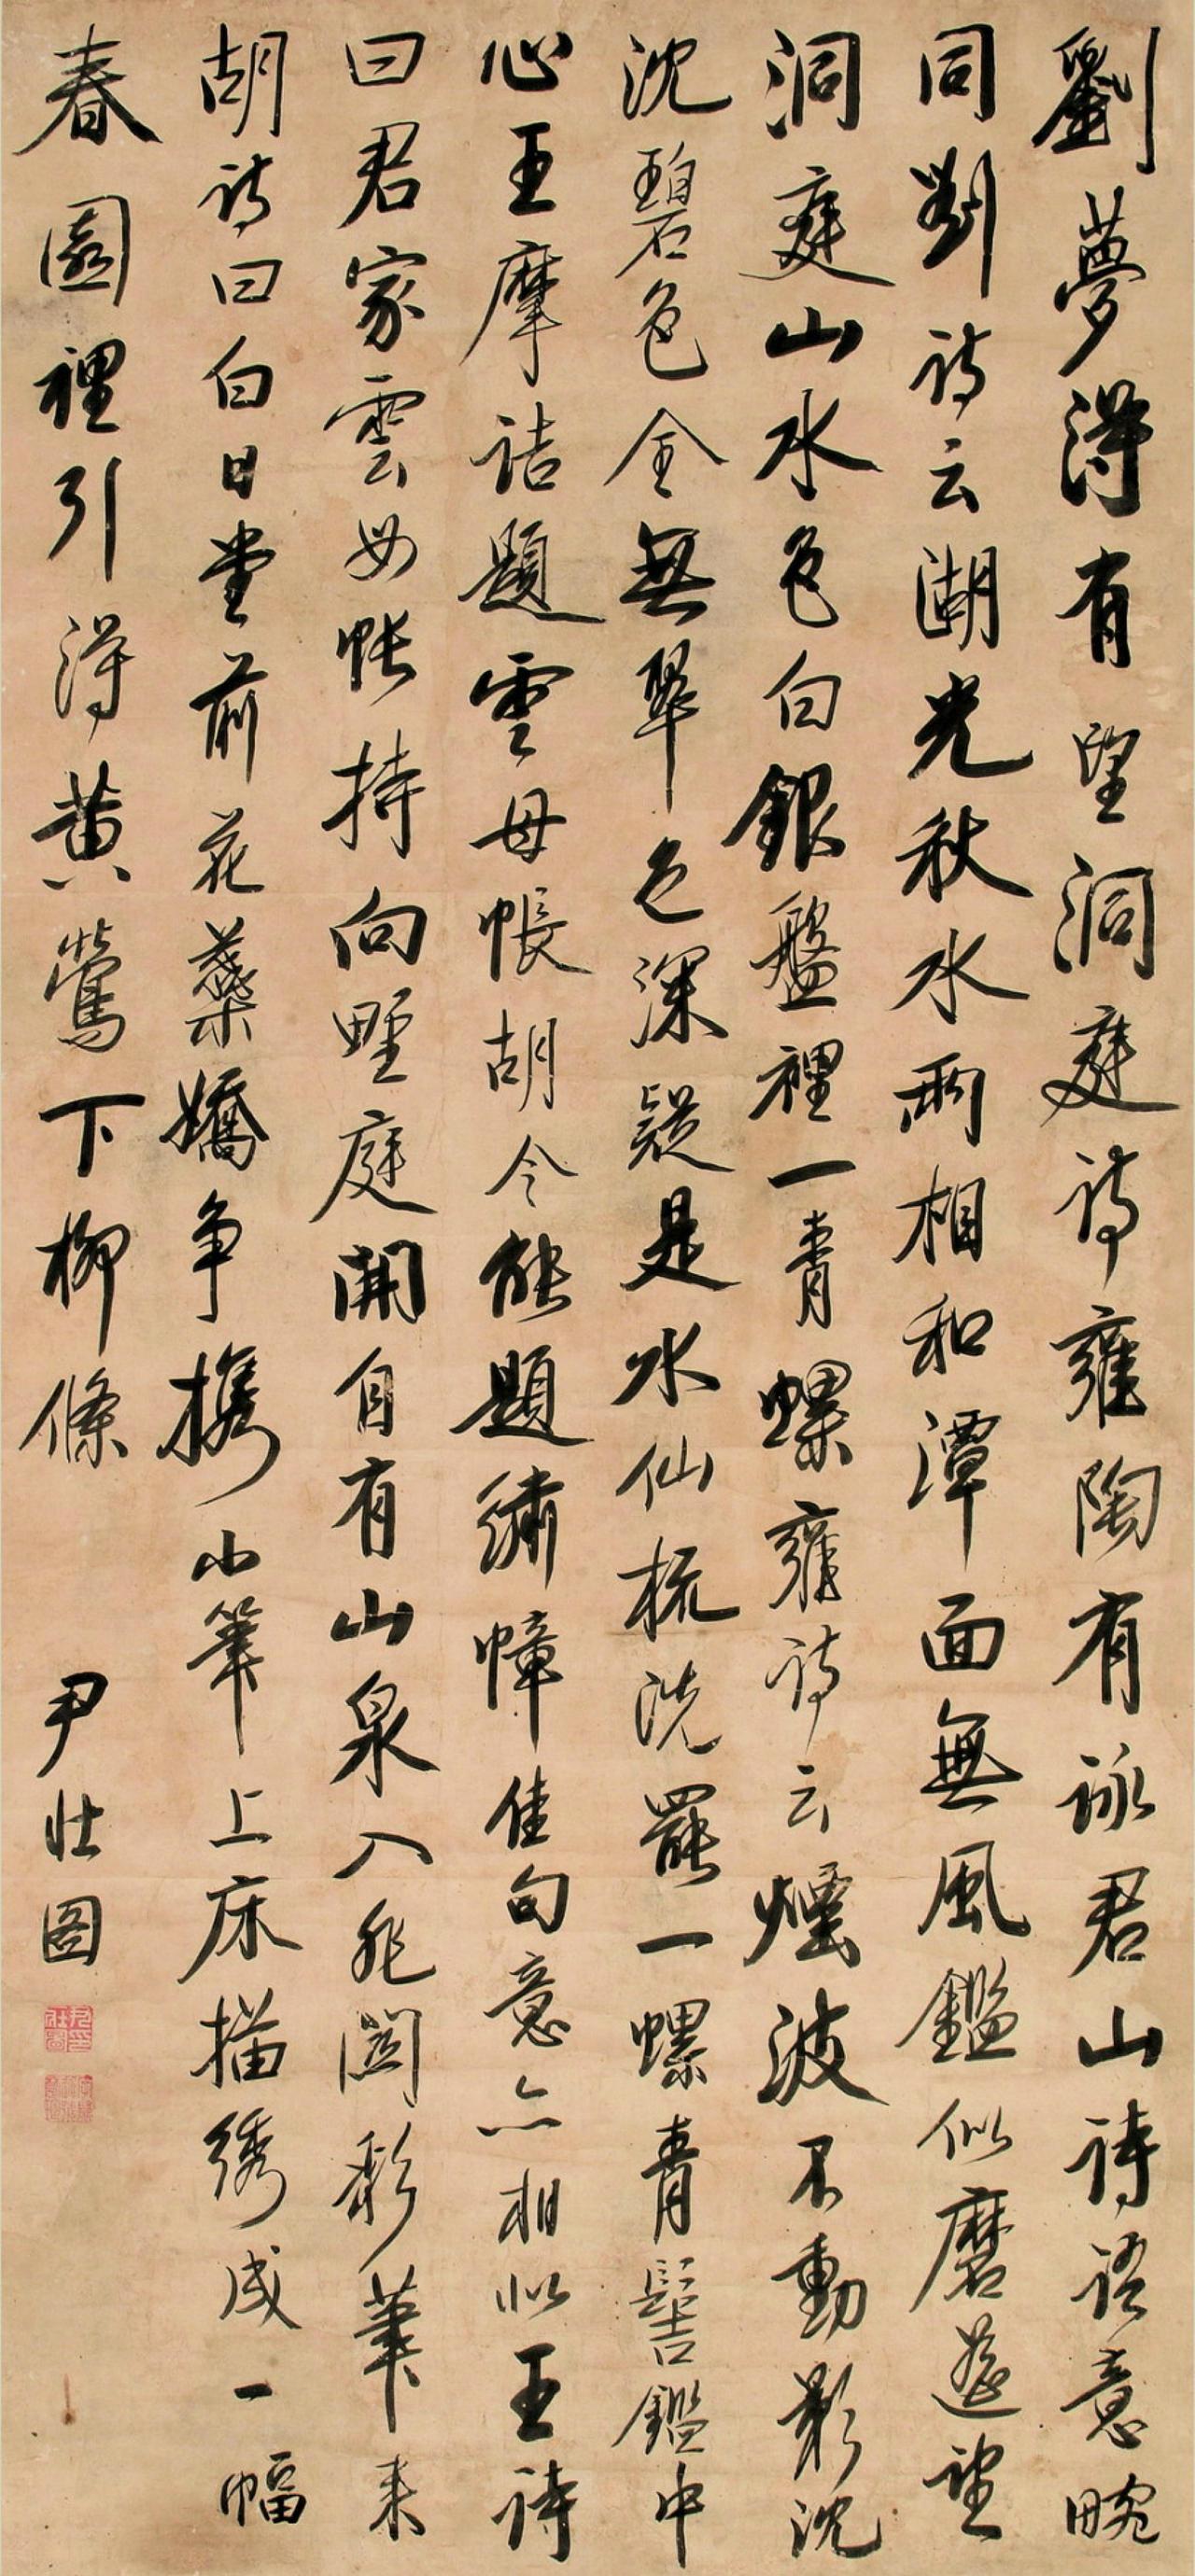 劉夢得有望洞庭詩雍陶有詠君山詩語意畹
同劉詩云湖光秋水兩相和潭面無風鑑似磨遙望
洞庭山水色白銀盤裡一青螺雍詩云煙波不動影沈
沈碧色全無翠色深疑是水仙梳洗罷一螺青髻鑑中
心王摩詰題雲母帳胡令能題繡幛佳句意亦相似王詩
曰君家雲母帳持向野庭開自有山泉入非關彩筆来
胡詩曰白日堂前花蘂嬌争擕小筆上床描綉成一幅
春園裡引得黄鶯下柳條
尹壮圖